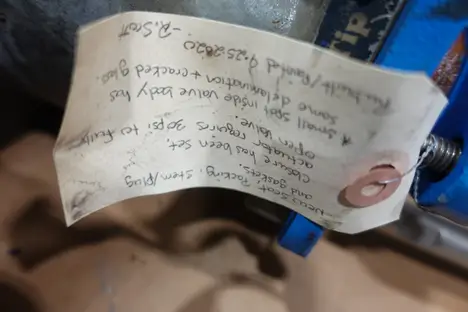 -New seat, packing, stem/plug
and gaskets.
closure has been set.
actuator requires 30 psi to fully
open valve.
* small spot inside valve body has
some delamination + cracked glass.
Rebuilt/Painted 9-25-2020
-R. Scott
Tip